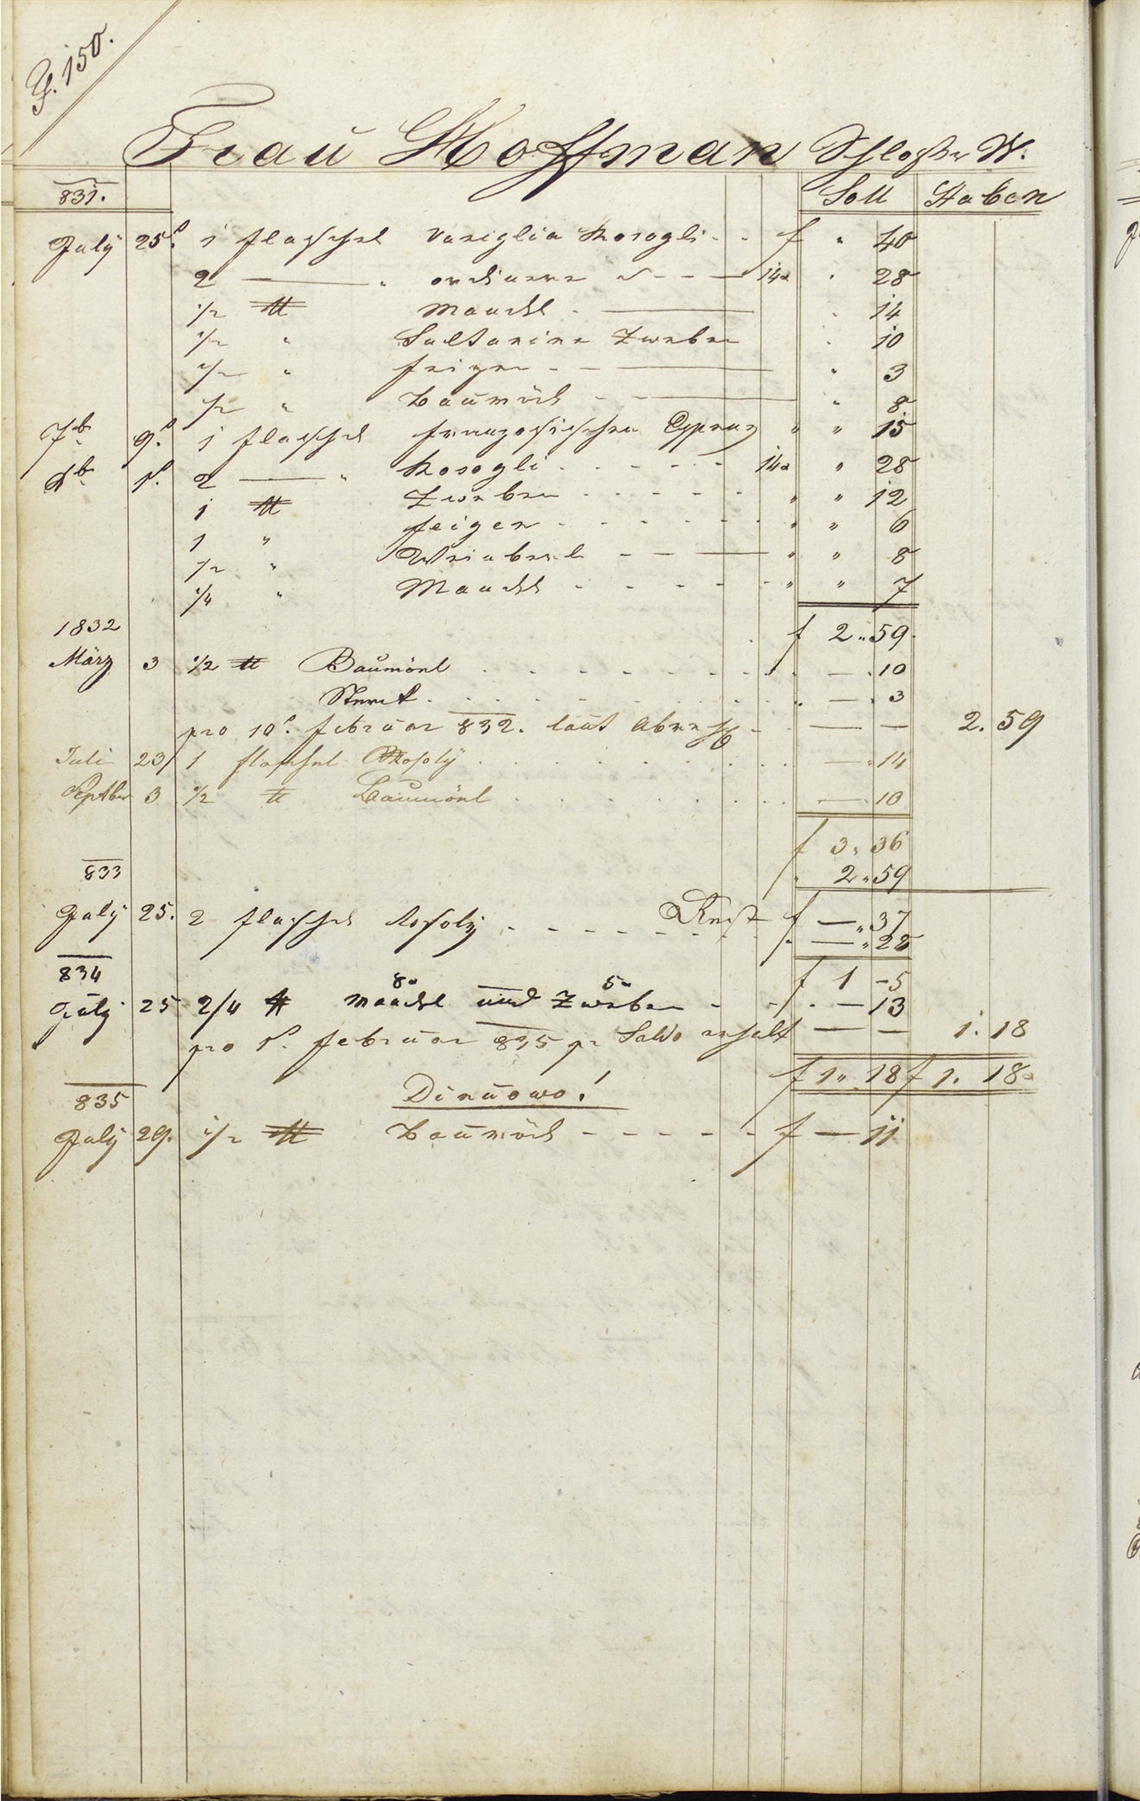 F. 150.
Frau Hoffman Schlosser W.
831. Soll Haben
July 25. 1 flaschel Vaniglia Rosogli f " 40
2 — " ordinere 14 " 28
1/2 ℔ Mandl " 14
1/2 " Sultanine Zweben " 10
1/2 " feigen " 3
1/2 " Baumöhl " 8
7b. 9. 1 flaschel französischen Cypro " " 15
1. 2 — " Rosogli 14 " 28
1 ℔ Zweben " " 12
1 " feigen " " 6
1/2 " Weinberl " " 8
1/4 " Mandl " " 7
1832 f 2 " 59
März 3 1/2 ℔ Baumönl — 10
— 3
pro 10. februar 832. laut — — 2. 59
Juli 23 1 flaschel Rosoly — 14
Septber 3 1/2 ℔ Baumönl — 10
f 3 " 36
833 " 2 " 59
July 25. 2 flaschel Rosoly Rest f — " 37
— " 28
834 f 1 - 5
July 25 2/4 ℔ Mandl 8 und Zweben 5 - " — 13
pro 1. februar 835 pr Saldo erhalt — — 1. 18
f 1 " 18 f 1. 18
835
July 29. 1/2 ℔ Baumöhl f — 11